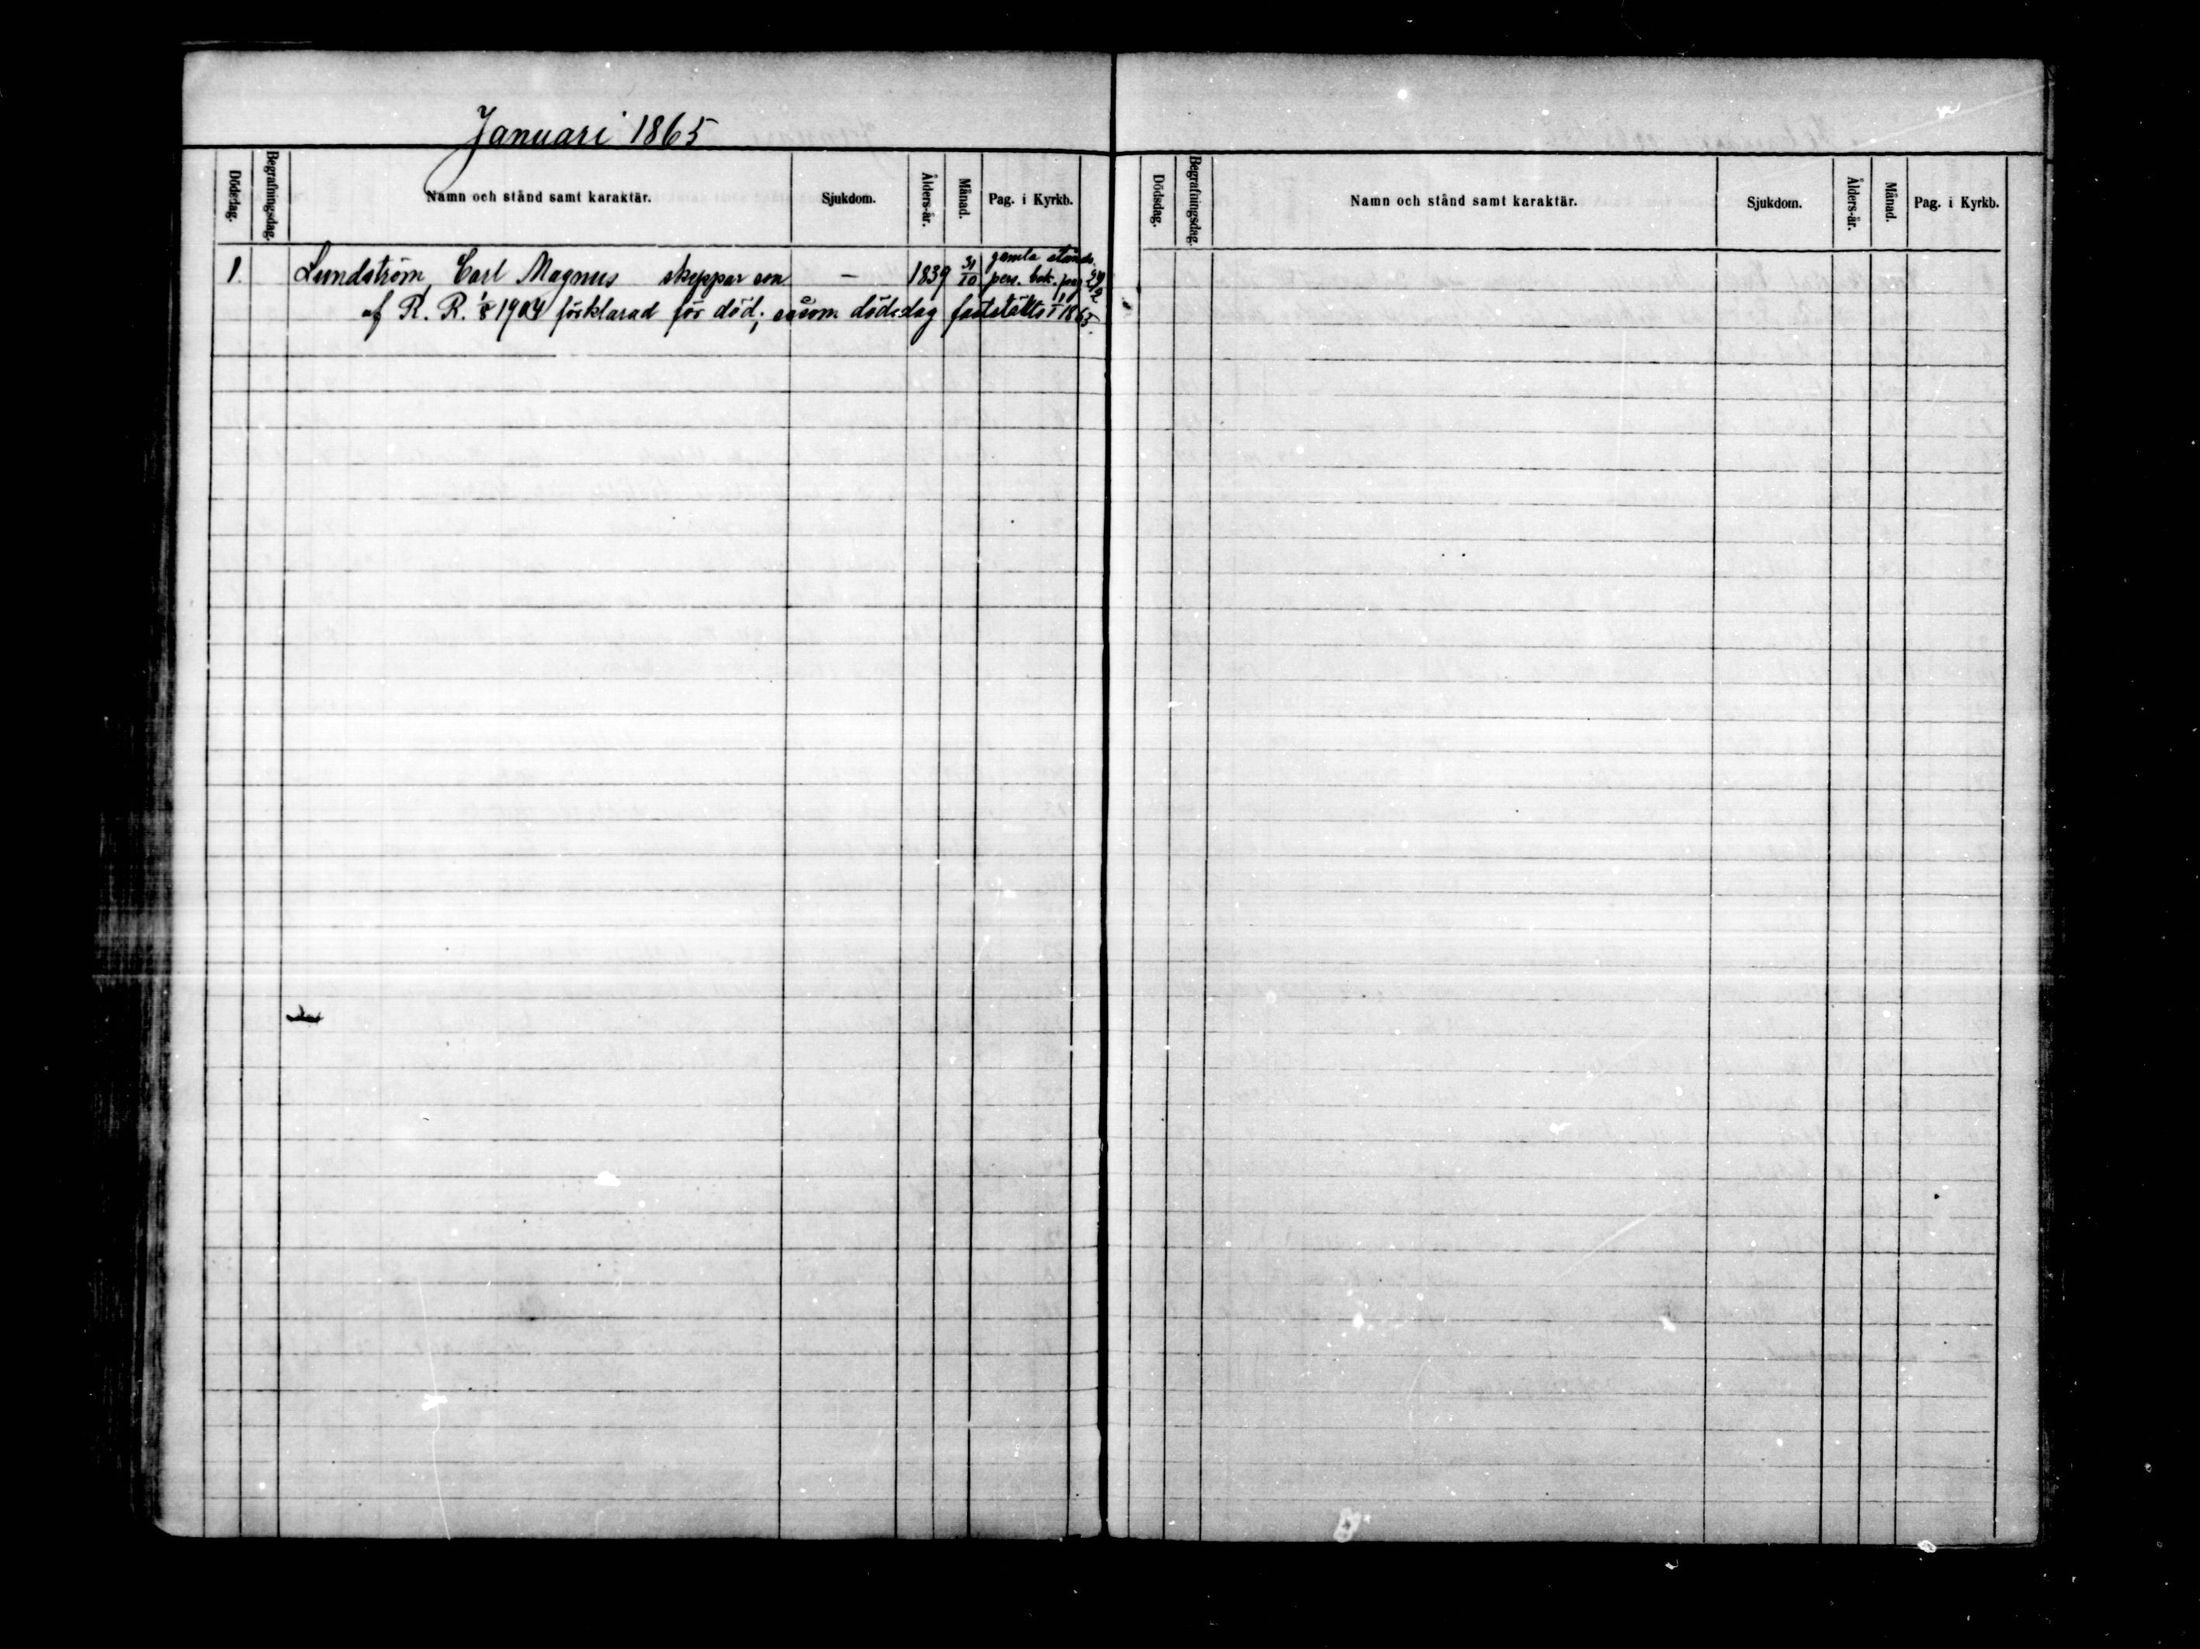 Januari 1865
Dödsdag. Begrafningsdag. Namn och stånd samt karaktär. Sjukdom. Ålders-år. Månad. Pag. i Kyrkb.
1. Lundström, Carl Magnus skeppar son — 1839 31/10 gamla stånds.
pers. bok. pag
af R. R. 1/8 1904 förklarad för död; såsom dödsdag fastställts 1/1 1865.
Dödsdag. Begrafningsdag. Namn och stånd samt karaktär. Sjukdom. Ålders-år. Månad. Pag. i Kyrkb.